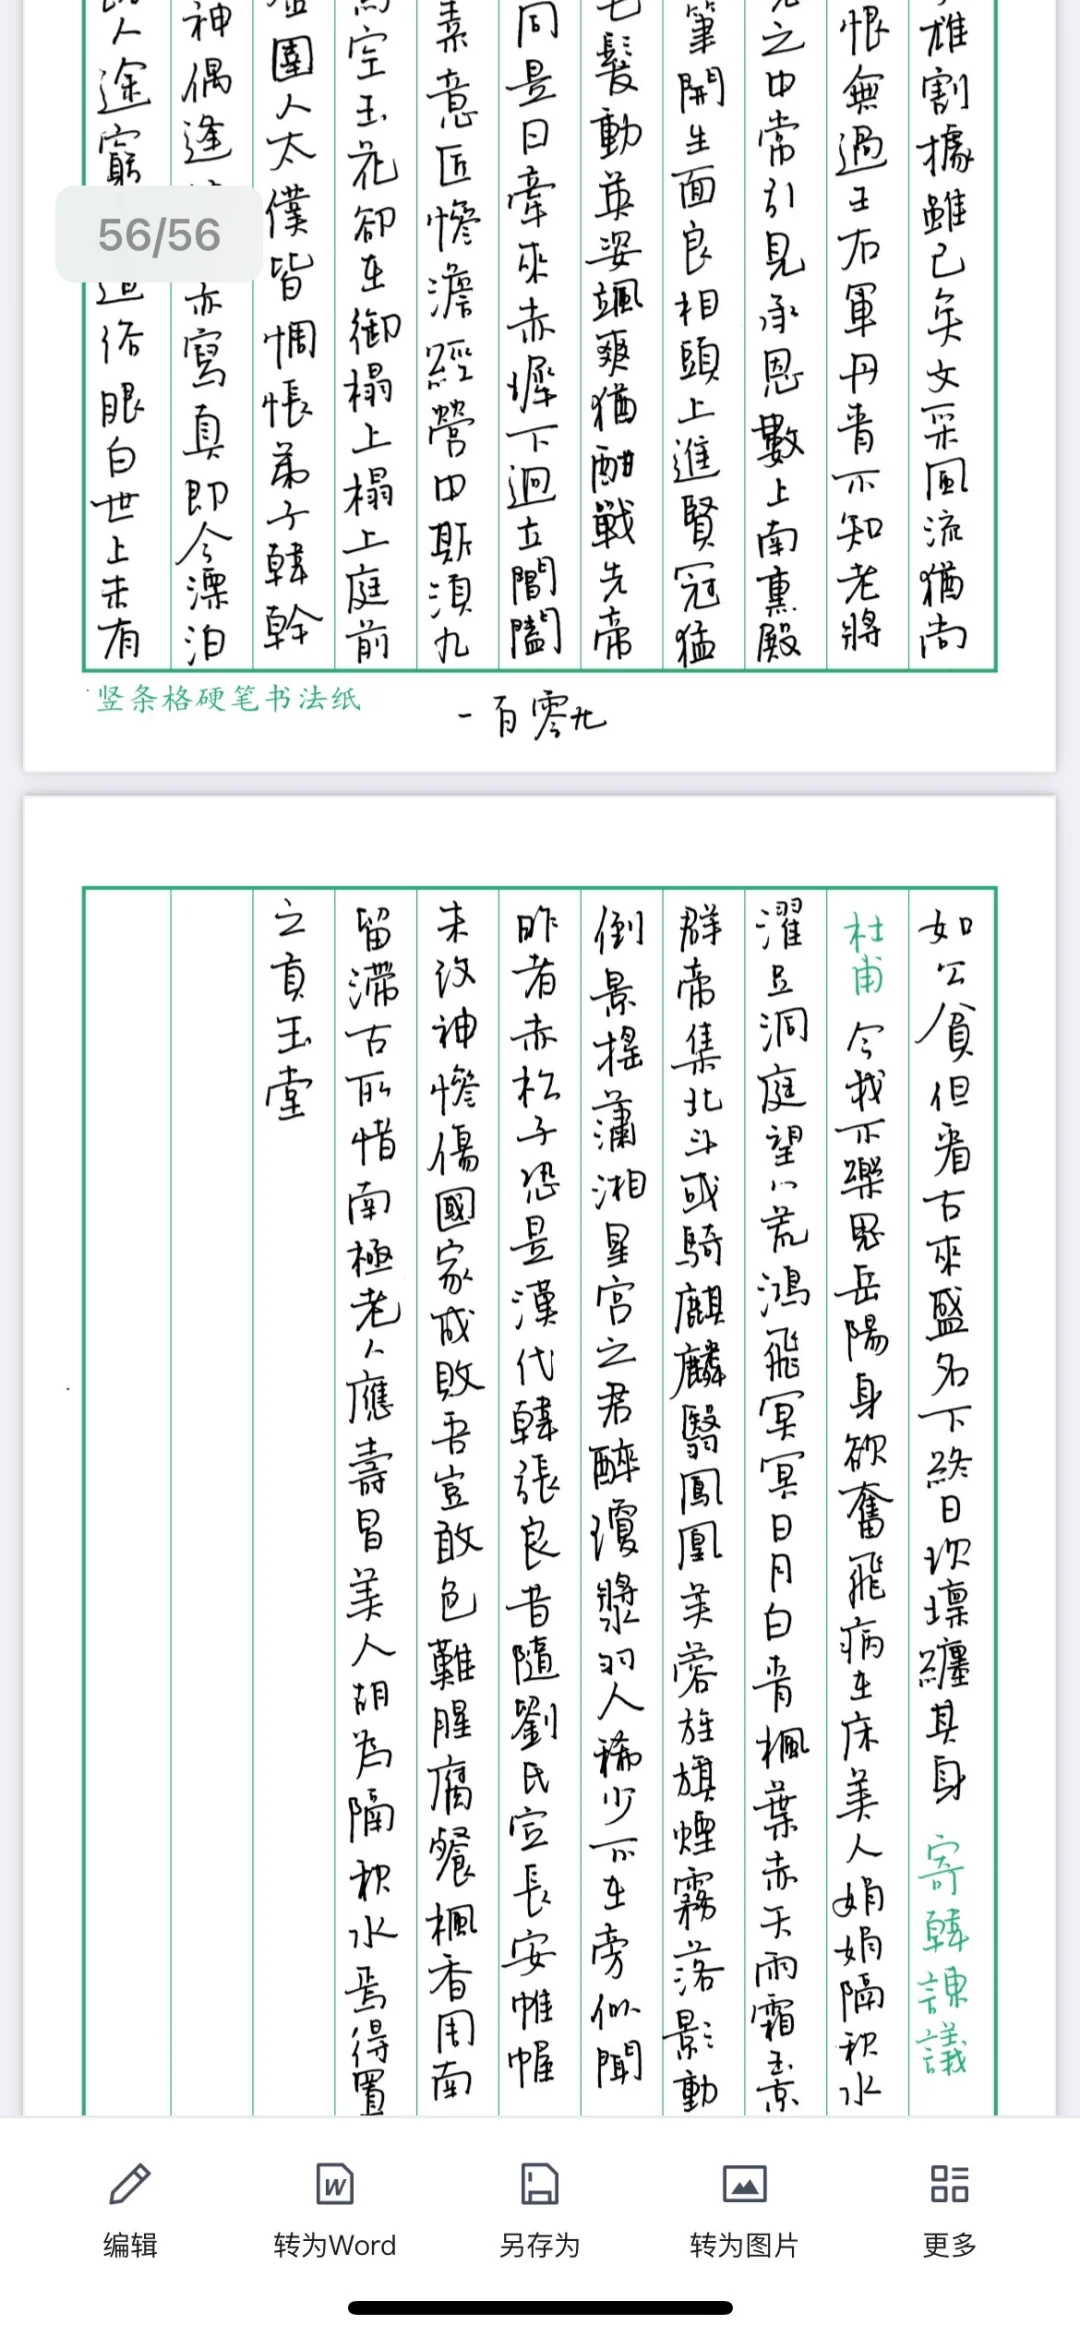 56/56
雄割據雖已矣文采風流猶尚
恨無過王右軍丹青不知老將
之中常引見承恩數上南熏殿
筆開生面良相頭上進賢冠猛
毛髮動英姿颯爽猶酣戰先帝
同是日牽來赤墀下迥立閶闔
素意匠慘澹經營中斯須九
空玉花卻在御榻上榻上庭前
圉人太僕皆惆悵弟子韓幹
神偶逢亦寫真即今漂泊
人途窮返俗眼白世上未有
竖条格硬笔书法纸
一百零九
如公貧但看古來盛名下終日坎壈纏其身 寄韓諫議
杜甫 今我不樂思岳陽身欲奮飛病在床美人娟娟隔秋水
濯足洞庭望八荒鴻飛冥冥日月白青楓葉赤天雨霜玉京
群帝集北斗或騎麒麟翳鳳凰芙蓉旌旗煙霧落影動
倒景搖瀟湘星宮之君醉瓊漿羽人稀少不在旁似聞
昨者赤松子恐是漢代韓張良昔隨劉氏定長安帷幄
未改神慘傷國家成敗吾豈敢色難腥腐餐楓香周南
留滯古所惜南極老人應壽昌美人胡為隔秋水焉得置
之貢玉堂
编辑
转为Word
另存为
转为图片
更多